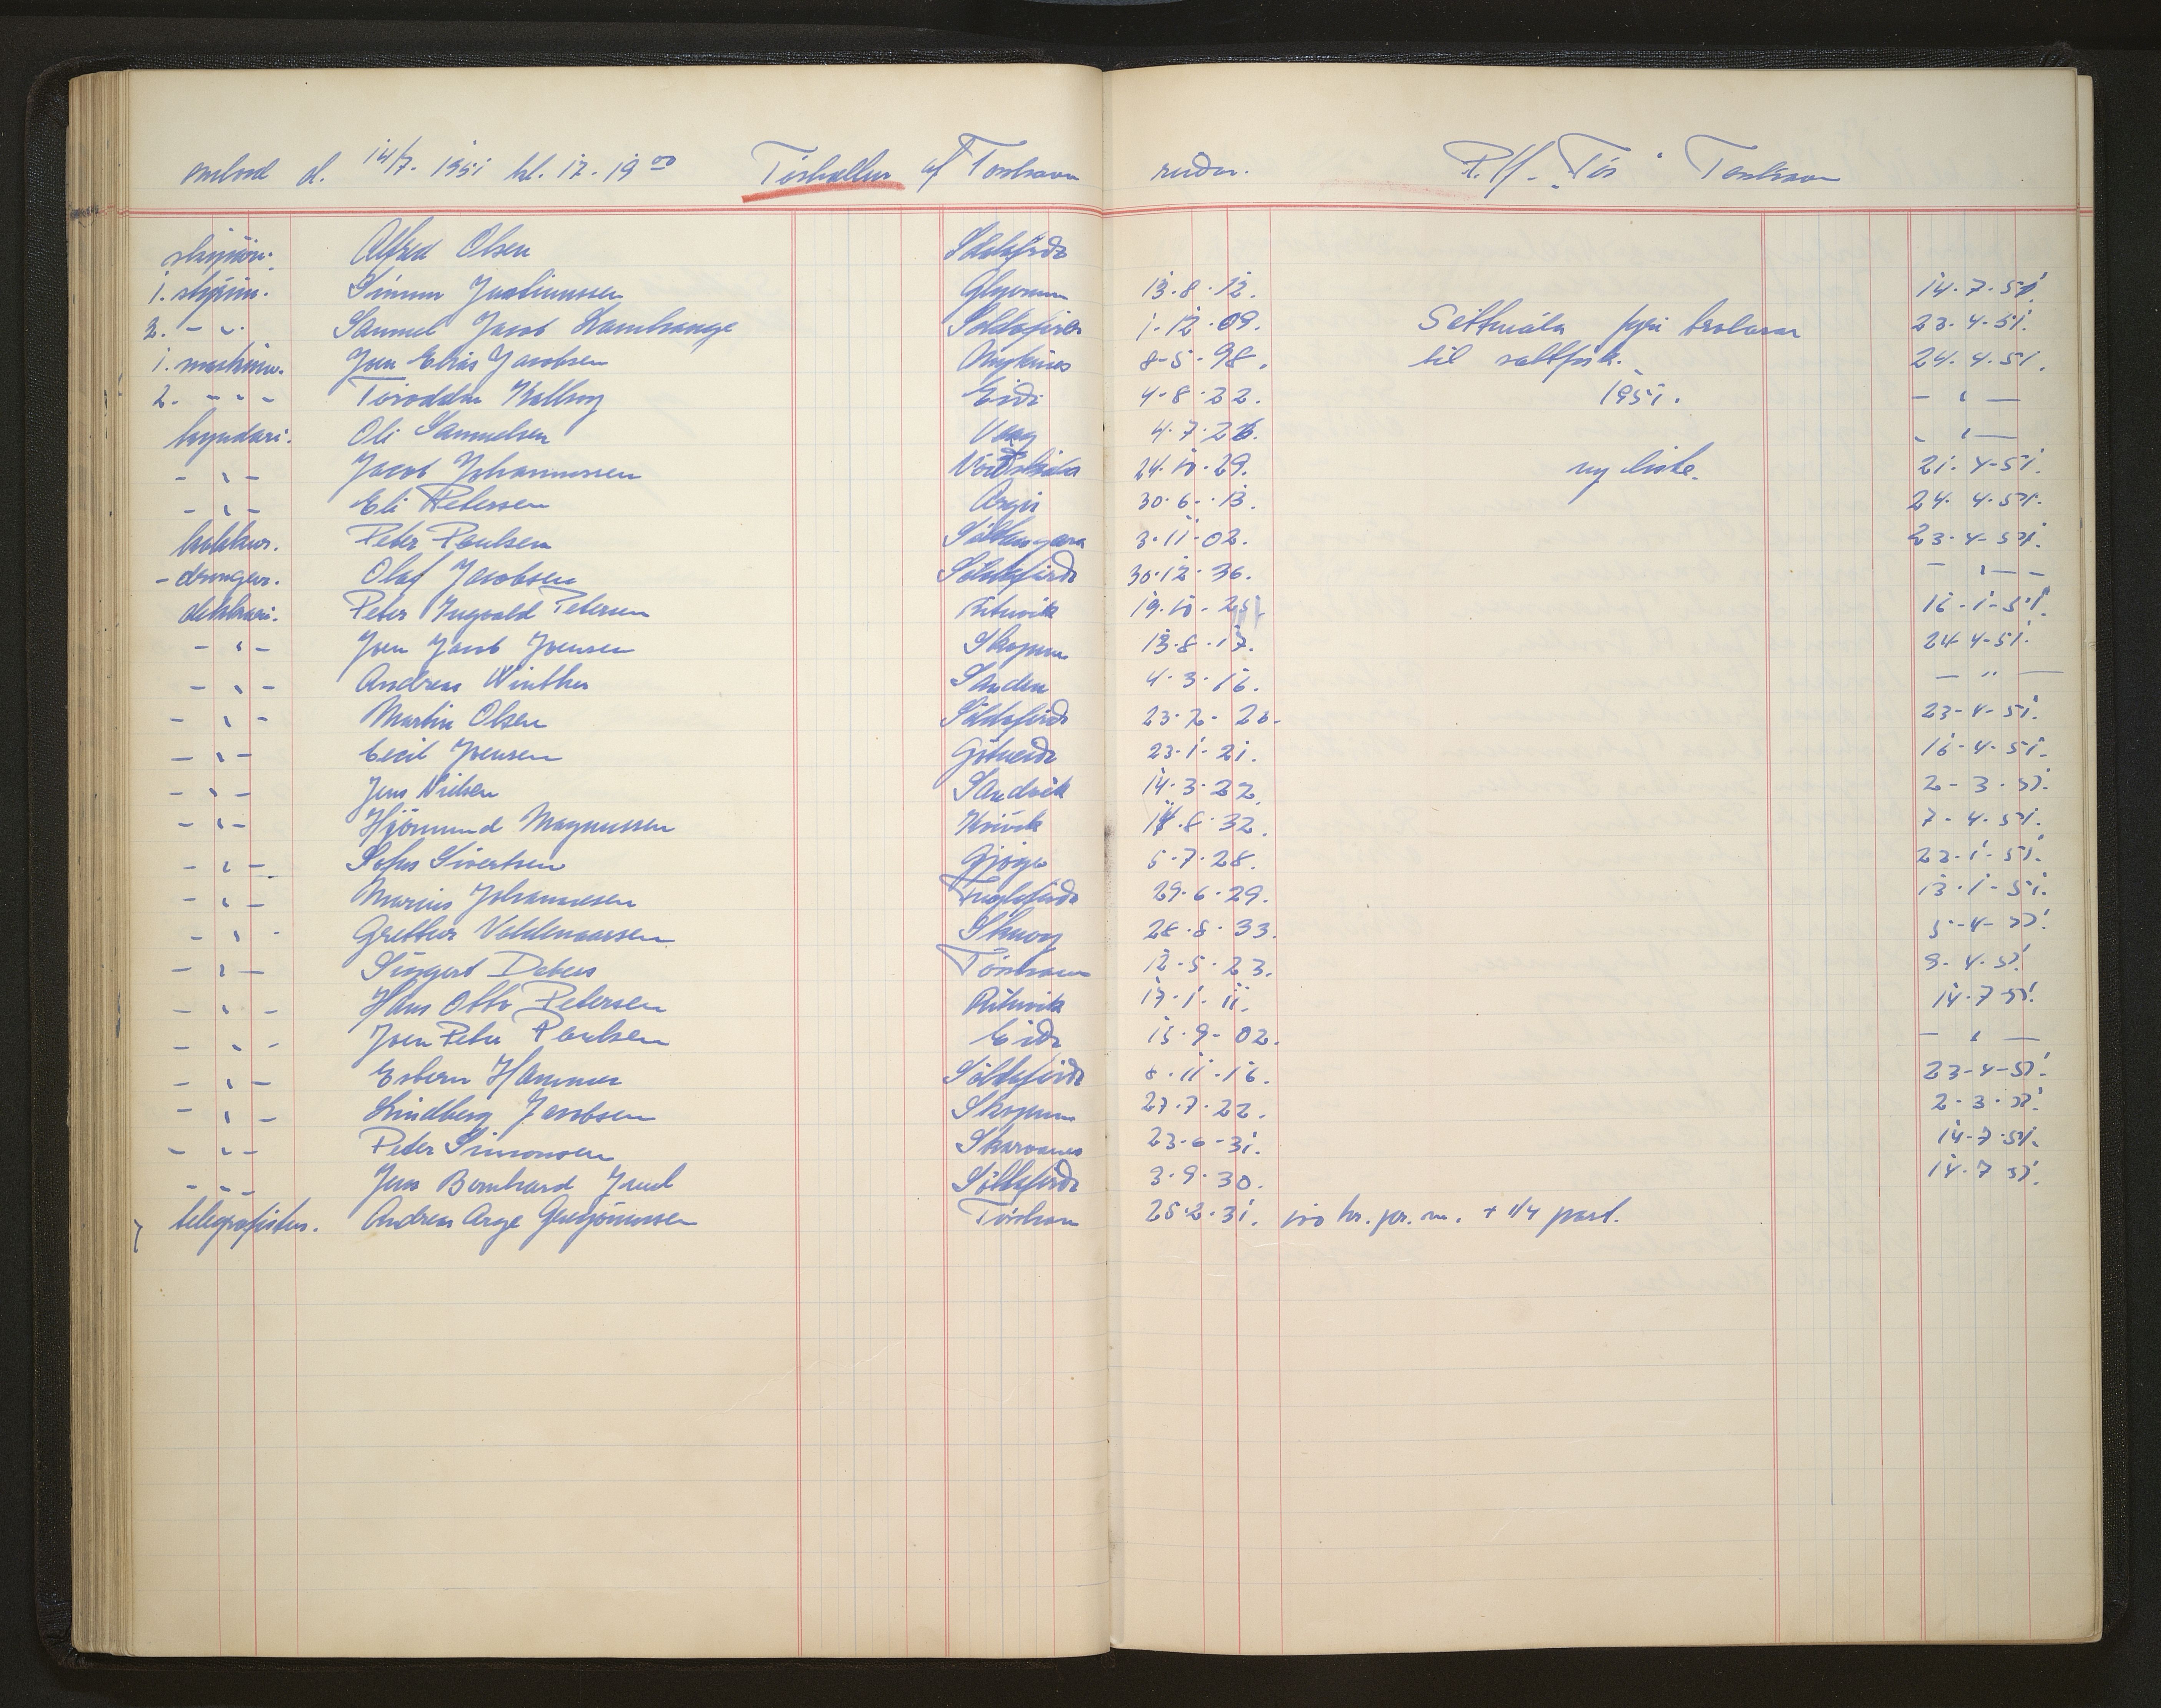 ombord d. 14/7. 1951 kl. 17-19 00 Tórhallur af Torshavn reiðar. P.f. "Tór" Torshavn
skipari. Alfred Olsen Söldafirði
1. stýrim. Simun Justinussen Glyvrum 13.8.12. 14.7.51.
2. - " - Samuel Jacob Lamhauge Söldafirði 1.12.09. Settmála fyri trolarar 23.4.51.
1. maskinm. Joen Elias Jacobsen Mykines 8-5-98. til saltfisk. 24.4.51.
2. - - - Tóroddur Kallsoy Eiði 4-8-22. 1951. - " -
kyndari. Oli Samuelsen Vaag 4.7.26. - " -
- " - Jacob Johannessen Norðskála 24.10.29. ny liste. 21.4-51.
- " - Eli Petersen Argir 30.6.13. 24.4.51.
kokkur. Peter Poulsen Saltangara 3.11.02. 23.4-51.
- drongur. Olaf Jacobsen Söldafirði 30.12.36. - " -
dekkari. Peter Ingvald Petersen Ritivik 19.10-25. 16-1-51.
- " - Joen Jacob Joensen Skopun 13.8.17. 24 4-51.
- " - Andreas Winther Sandur 4.3.16. - " -
- " - Martin Olsen Söldafirði 23.7-20. 23-4-51.
- " - Cecil Joensen Götueiði 23.1-21. 16-4-51.
- " - Jens Nielsen Sandvik 14.3.22. 2-3.51.
- " - Hjörmund Magnussen Kvivik 14.8.32. 7-4.51.
- " - Sofus Sivertsen Gjógv 5.7.28. 22.1-51.
- " - Marius Johannesen Fuglafirði 29.6.29. 13.1-51.
- " - Grettur Valdemarsen Skuvoy 28.8.33. 5-4-51.
- " - Siggert Debess Tórshavn 12.5.23. 9.4.51.
- " - Hans Otto Petersen Ritivik 17.1.11. 14.7-51.
- " - Joen Peter Poulsen Eiði 15.9-02. - " -
- " - Esbern Hammer Söldafirði 8.11.16. 23-4-51.
- " - Lindberg Jacobsen Skopun 27.7.22. 2-3.51.
- " - Peter Simonsen Skarvanes 23-6-31. 14-7.51.
- " - Jens Bernhard Juul Söldafirði 3.9.30. 14.7 51.
telegrafistur. Andreas Arge Gregoriussen Tórshavn 25.2.31. 500 kr. pr. m. + 1/4 part.